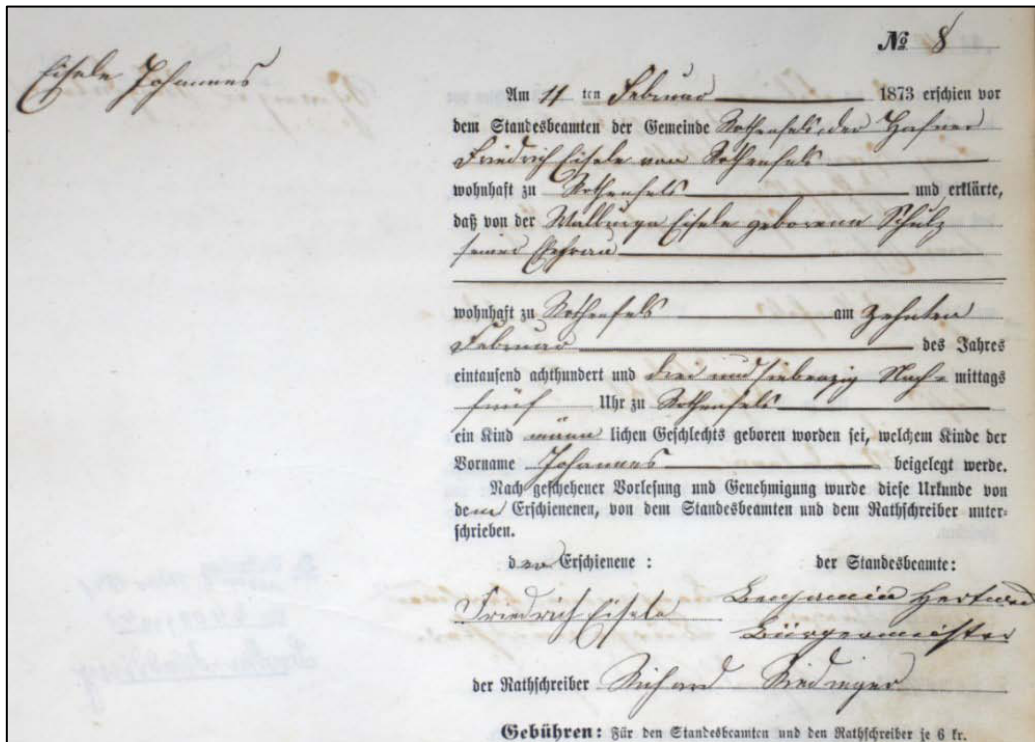 № 8
Eisele Johannes
Am 11 ten Februar 1873 erschien vor
dem Standesbeamten der Gemeinde Rothenfels, der Hafner
Friedrich Eisele von Rothenfels
wohnhaft zu Rothenfels und erklärte,
daß von der Walburga Eisele geborenn Schulz
seiner Ehefrau
wohnhaft zu Rothenfels am zehnten
Februar des Jahres
eintausend achthundert und drei und siebenzig Nach= mittags
fünf Uhr zu Rothenfels
ein Kind männ lichen Geschlechts geboren worden sei, welchem Kinde der
Vorname Johannes beigelegt werde.
Nach geschehener Vorlesung und Genehmigung wurde diese Urkunde von
dem Erschienenen, von dem Standesbeamten und dem Rathschreiber unter-
schrieben.
der Erschienene : der Standesbeamte:
Friedrich Eisele Benjamin
Bürgermeister
der Rathschreiber Richard
Gebühren: Für den Standesbeamten und den Rathschreiber je 6 kr.